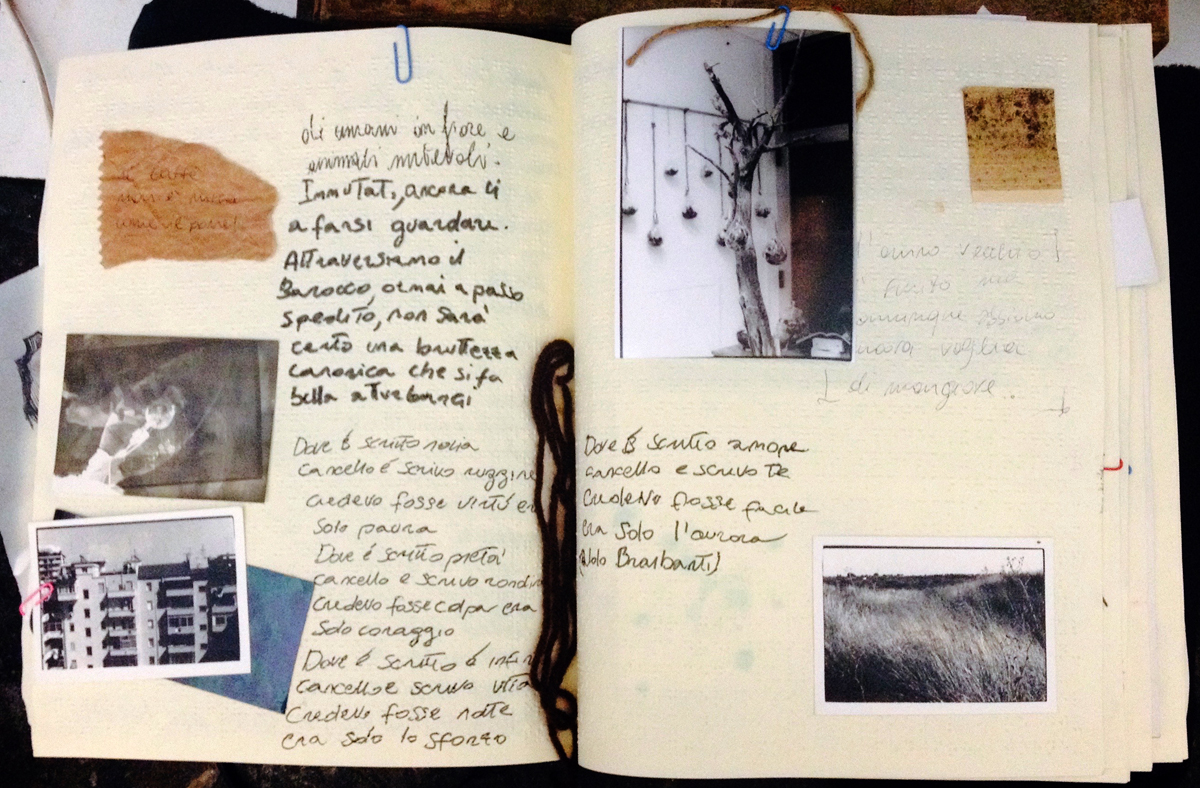 di umani in fiore e
animali mitevoli.
Immutati, ancora lì
a farsi guardare.
Attraversiamo il
Barocco, ormai a passo
spedito, non sarà
certo una bruttezza
canonica che si fa
bella a turbarci
Dove è scritto noia
cancello e scrivo ruggine
credevo fosse virtù er
solo paura
Dove è scritto pietà
cancello e scrivo rondin
credevo fosse colpa era
solo coraggio
Dove è scritto è infin
cancello e scrivo vita
credevo fosse notte
era solo lo sforzo
non è
l'anno vecchio
è finito ma
comunque
voglia
di mangiare...
Dove è scritto amore
cancello e scrivo te
credevo fosse facile
era solo l'aurora
(Aldo Braibanti)